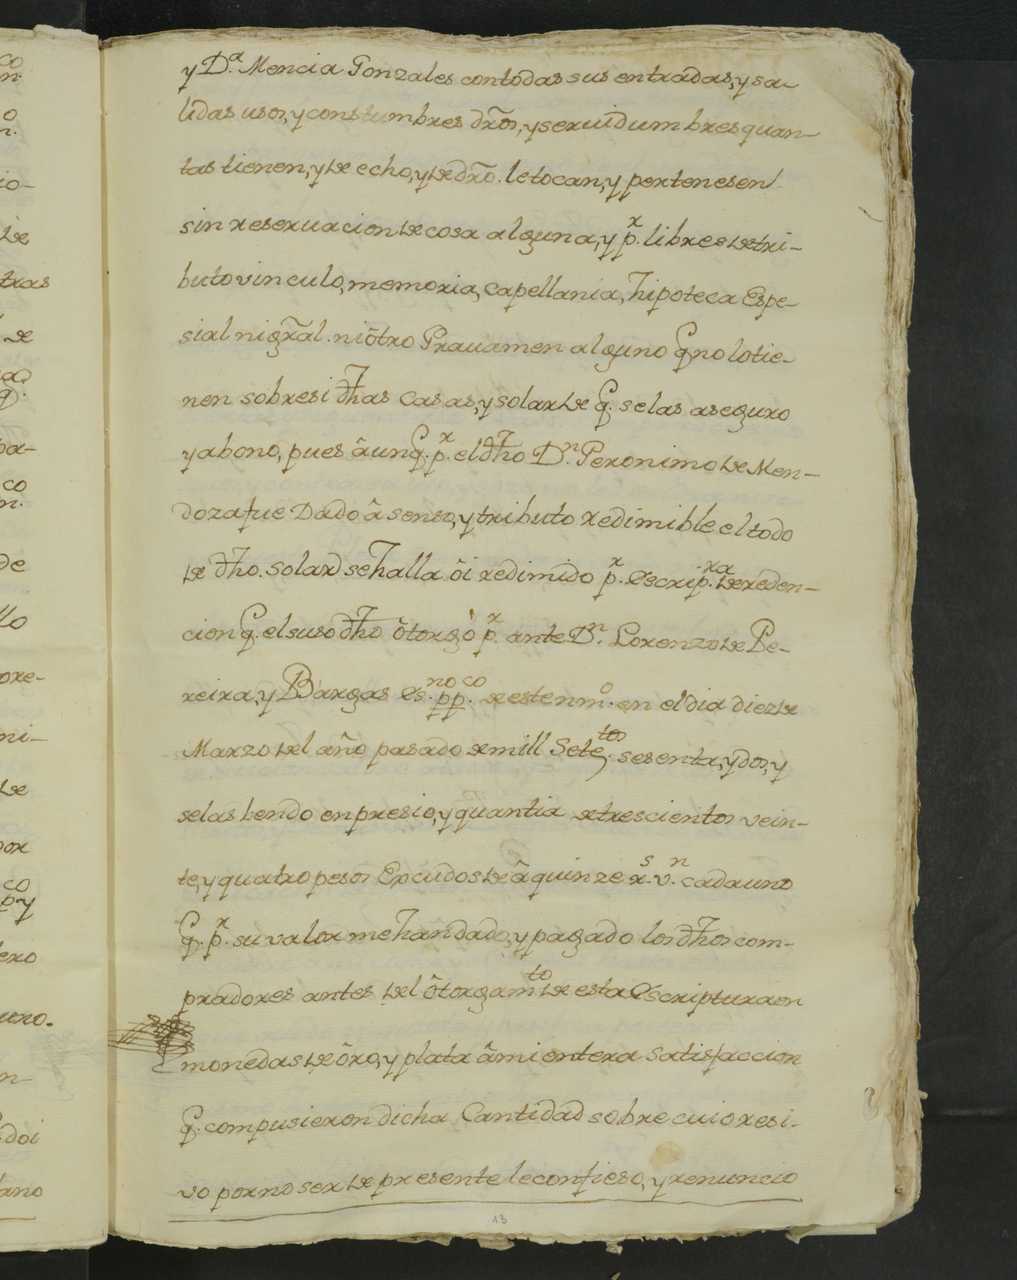 y D.ª Mencia Gonzales con todas sus entradas, y sa-
lidas usos, y constumbres dr̃os, y seruidumbres quan-
tas tienen, y de echo, y de dr̃o. le tocan, y pertenesen
sin reseruacion de cosa alguna, y p.r libres de tri-
buto vinculo, memoria, capellania, hipoteca Espe-
sial ni gr̃al. ni ôtro Grauamen alguno q̃ no lo tie-
nen sobre si dhas casas, y solar de q̃. se las aseguro
y abono, pues âunq̃. p.r el dho D.n Geronimo de Men-
doza fue Dado â senso, y tributo redimible el todo
de dho. solar se halla ôi redimido p.r escrip.ra de reden-
cion q̃. el suso dho ôtorgò p.r ante D.n Lorenzo de Pe-
reira, y Bargas es.no pp.co de este nm.o en el dia diez de
Marzo del año pasado de mill Sete.tos sesenta, y dos, y
se las bendo en presio, y quantia de trescientos vein-
te, y quatro pesos Escudos de â quinze r.s v.n cada uno
q̃. p.r su valor me han dado, y pagado los dhos com-
pradores antes del ôtorgam.to de esta Escriptura en
monedas de ôro, y plata â mi entera satisfaccion
q̃. compusieron dicha Cantidad sobre cuio resi-
vo por no ser de presente le confieso, y renuncio
13